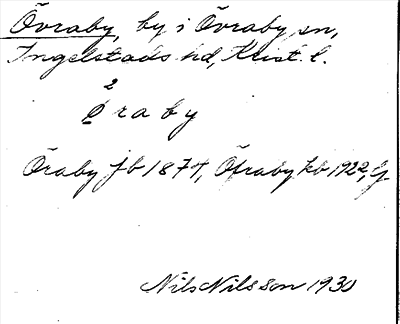 Övraby, by i Övraby sn,
Ingelstads hd, Krist. l.
2
ǫ r a b y
Öraby jb 1877, Öfraby kb 1922,
Nils Nilsson 1930